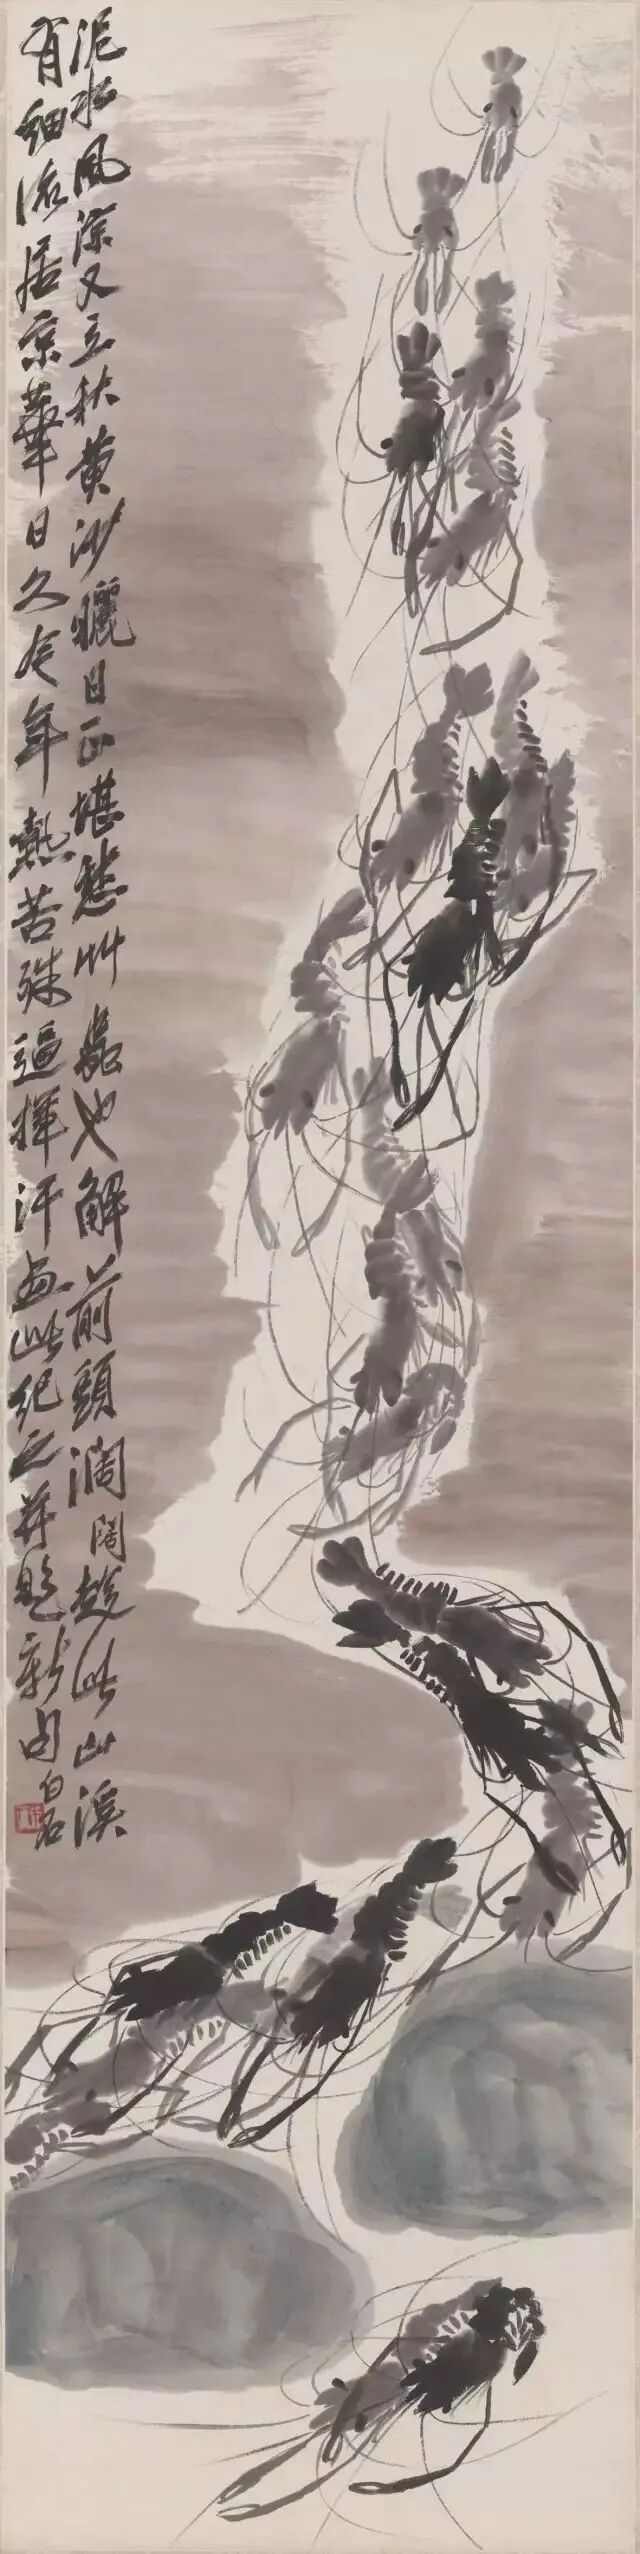 泥水風涼又立秋黄沙曬日正堪愁艸也解前頭濶闊趁此山溪
有細流居京華日久今年熱苦殊逼揮汗畫此紀之并題新句白石